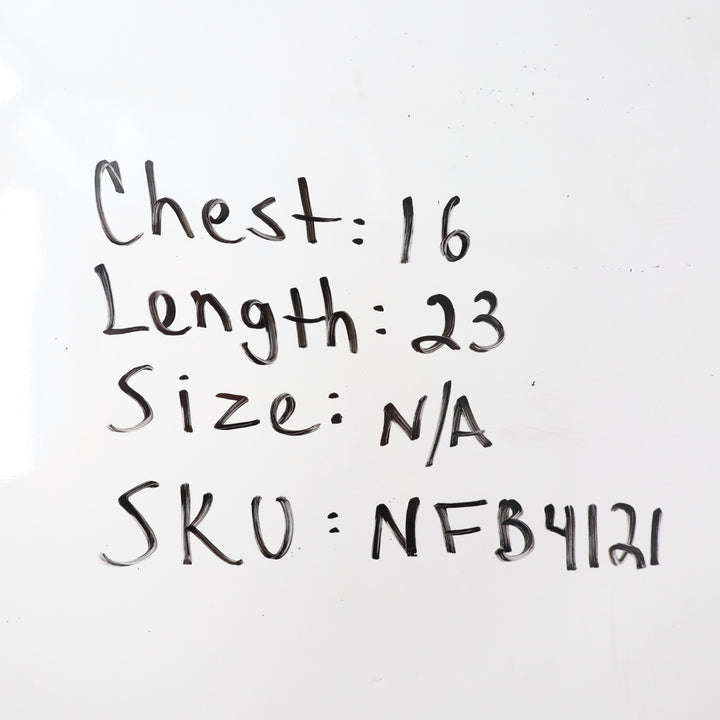 Chest: 16
Length: 23
Size: N/A
SKU: NFB4121